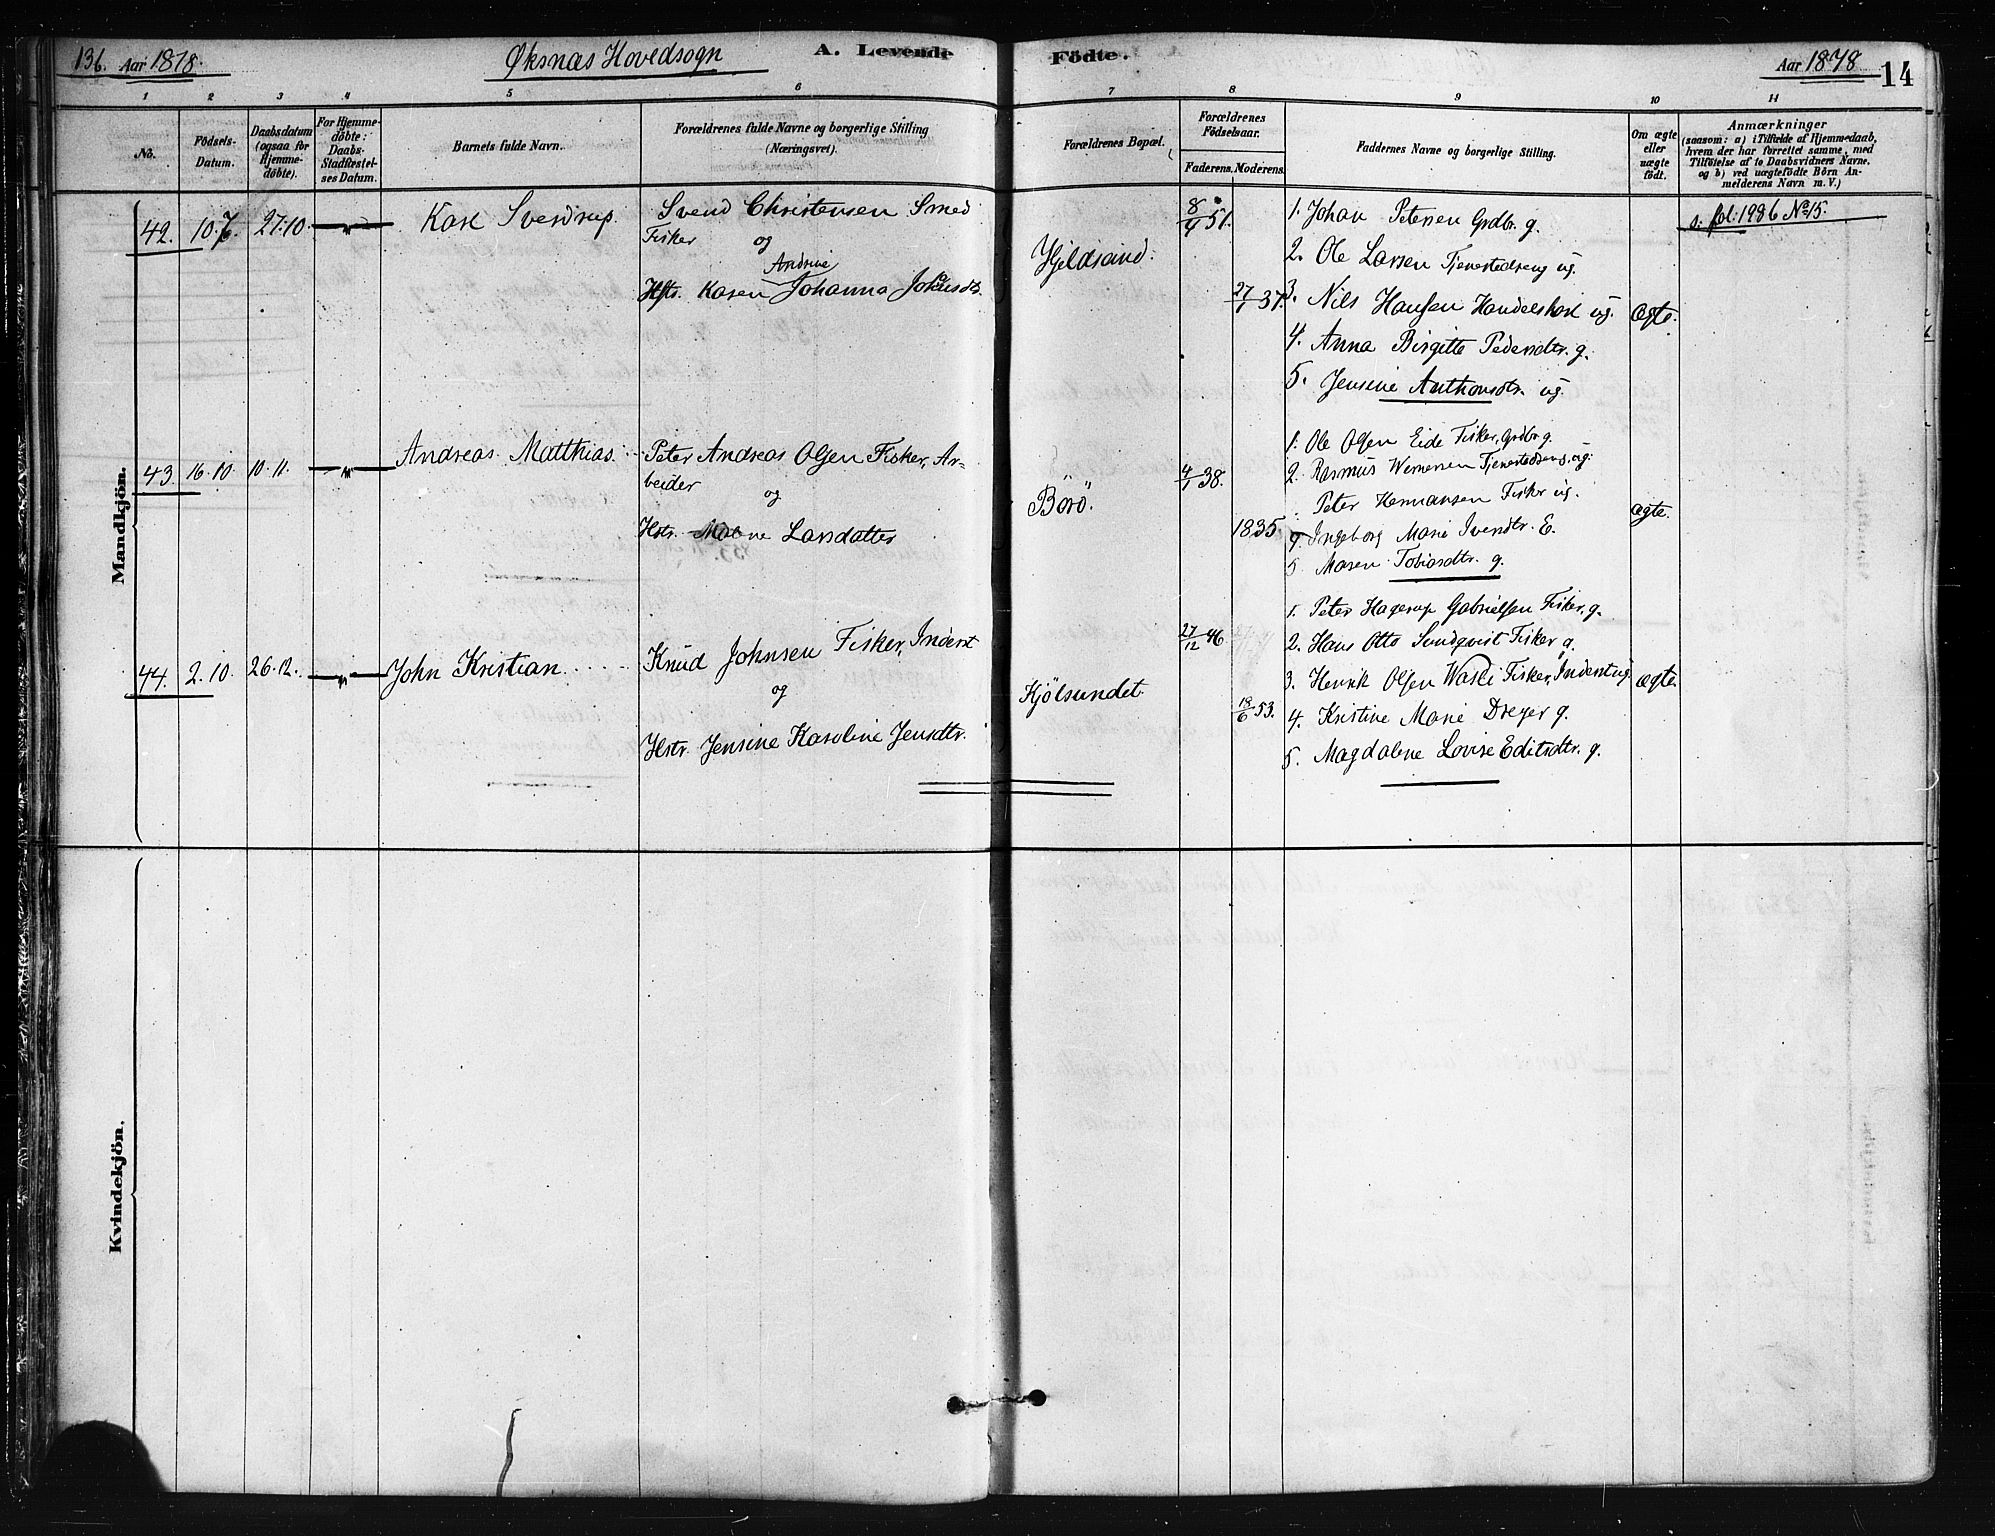 136. Aar 1878. Øksnæs Hovedsogn A. Levende Födte. Aar 1878 14
1 2 3 4 5 6 7 8 9 10 11
No.
Födsels-
Datum.
Daabsdatum
(ogsaa for
Hjemme-
döbte).
For Hjemme-
döbte:
Daabs-
Stadfæstel-
ses Datum.
Barnets fulde Navn.
Forældrenes fulde Navne og borgerlige Stilling
(Næringsvei).
Forældrenes Bopæl.
Forældrenes
Födselsaar.
Faderens. Moderens.
Faddernes Navne og borgerlige Stilling.
Om ægte
eller
uægte
födt.
Anmærkninger
(saasom: a) i Tilfælde af Hjemmedaab,
hvem der har forrettet samme, med
Tilföielse af to Daabsvidners Navne,
og b) ved uægtefödte Börn An-
melderens Navn m. V.)
Mandkjön.
42. 10.7. 27.10. Karl Sverdrup.
Svend Christensen Smed
Fisker og
Andrine
Hstr. Karen Johanna
Hjeldsand.
8/9 51.
27/7 37.
1. Johan Petersen Grdbr. g.
2. Ole Larsen Tjenestedreng ug.
3. Nils Hansen Handelskarl ug.
4. Anna Birgitte Pedersdtr. g.
5. Jensine Anthonsdtr. ug.
ægte.
s. fol. 1986 No. 15.
43. 16.10. 10.11. Andreas Matthias.
Peter Andreas Olsen Fisker, Ar-
beider
og
Hstr. Malene Larsdatter
Börö.
4/1 38.
1835.
1. Ole Olsen Eide Fisker, Grdbr g.
2. Rasmus Wernersen Tjenestedreng, ug.
Peter Hermansen Fisker ug.
4. Ingeborg Marie Iversdtr. E.
5. Maren Tobiasdtr. g.
ægte.
44. 2.10. 26.12. John Kristian.
Knud Johnsen Fisker, Inderst
og
Hstr. Jensine Karoline Jensdtr.
Kjölsundet.
27/12 46
18/6 53.
1. Peter Hagerup Gabrielsen Fisker, g.
2. Hans Otto Sundqvist Fisker g.
3. Henrik Olsen Fisker, Inderst ug.
4. Kristine Marie Dreyer g.
5. Magdalene Lovise Editsdtr. g.
ægte.
Kvindekjön.